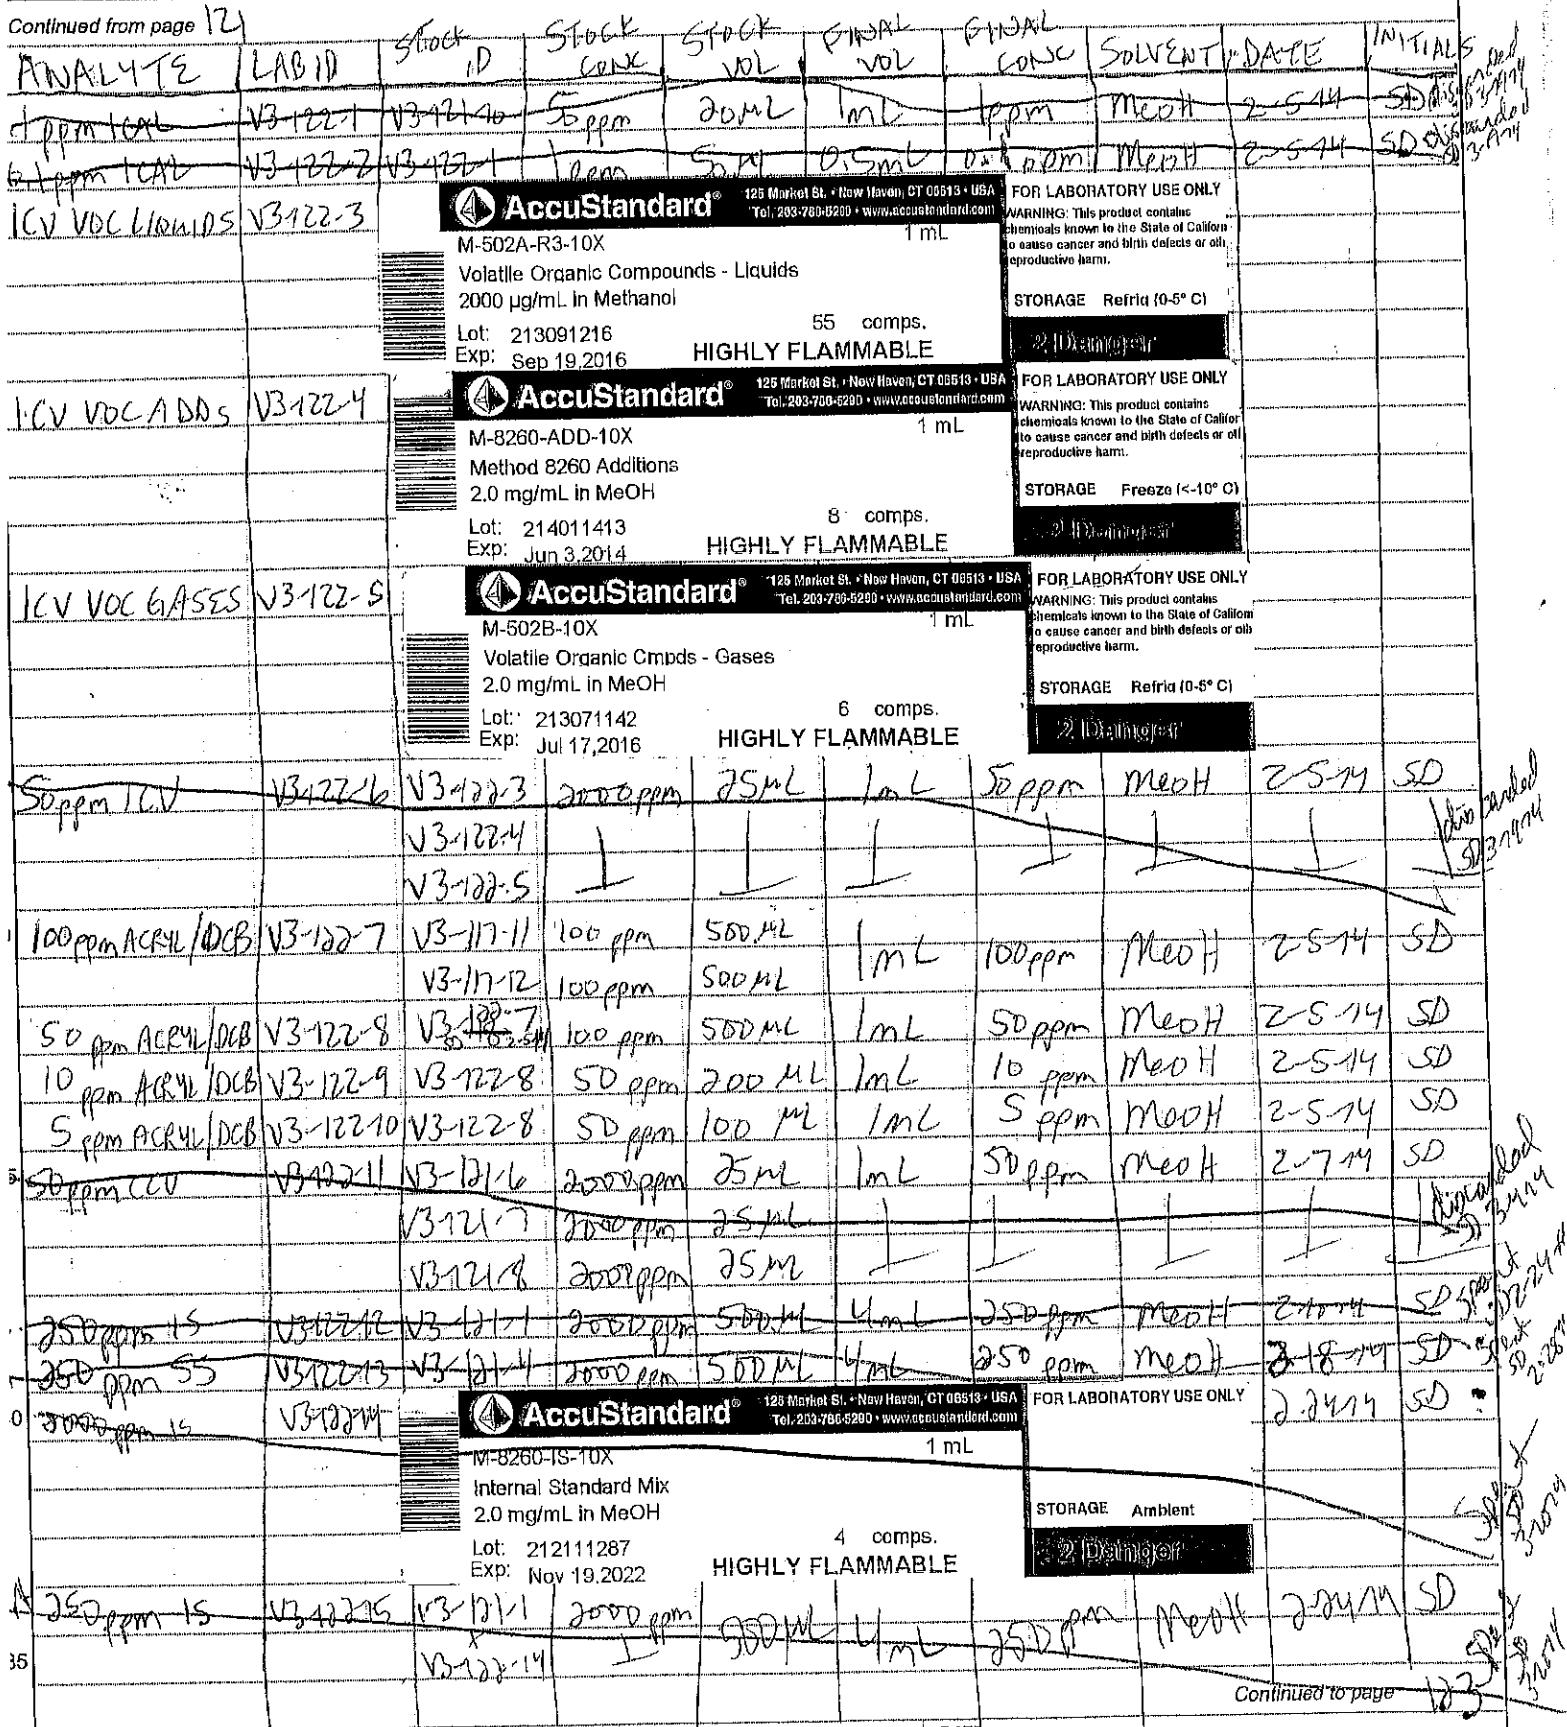 Continued from page 121
ANALYTE LAB ID STOCK ID STOCK CONC STOCK VOL FINAL VOL FINAL CONC SOLVENT DATE INITIALS
1 ppm ICAL V3-122-1 V3-121-10 50 ppm 20 µL 1mL 1ppm MeoH 2-5-14 SD discarded
0.1 ppm ICAL V3-122-2 V3-122-1 1ppm 50 µl 0.5mL 0.1 ppm MeoH 2-5-14 SD discarded
ICV VOC LIQUIDS V3-122-3
AccuStandard® 125 Market St. • New Haven, CT 06513 • USA
Tel. 203-786-5290 • www.accustandard.com
M-502A-R3-10X 1 mL
Volatile Organic Compounds - Liquids
2000 µg/mL in Methanol
Lot: 213091216 55 comps.
Exp: Sep 19,2016 HIGHLY FLAMMABLE
FOR LABORATORY USE ONLY
WARNING: This product contains
chemicals known to the State of Californ
o cause cancer and birth defects or oth
eproductive harm.
STORAGE Refrig (0-5° C)
2 Danger
ICV VOC ADDs V3-122-4
AccuStandard® 125 Market St. • New Haven, CT 06513 • USA
Tel. 203-786-5290 • www.accustandard.com
M-8260-ADD-10X 1 mL
Method 8260 Additions
2.0 mg/mL in MeOH
Lot: 214011413 8 comps.
Exp: Jun 3,2014 HIGHLY FLAMMABLE
FOR LABORATORY USE ONLY
WARNING: This product contains
chemicals known to the State of Califor
to cause cancer and birth defects or otl
reproductive harm.
STORAGE Freeze (<-10° C)
2 Danger
ICV VOC GASES V3-122-5
AccuStandard® 125 Market St. • New Haven, CT 06513 • USA
Tel. 203-786-5290 • www.accustandard.com
M-502B-10X 1 mL
Volatile Organic Cmpds - Gases
2.0 mg/mL in MeOH
Lot: 213071142 6 comps.
Exp: Jul 17,2016 HIGHLY FLAMMABLE
FOR LABORATORY USE ONLY
WARNING: This product contains
hemicals known to the State of Californ
o cause cancer and birth defects or oth
eproductive harm.
STORAGE Refrig (0-5° C)
2 Danger
50ppm ICV V3-122-6 V3-122-3 2000ppm 25µL 1mL 50ppm MeoH 2-5-14 SD
V3-122-4 discarded
V3-122-5 SD
100ppm ACRYL/DCB V3-122-7 V3-117-11 100 ppm 500µL 1mL 100ppm MeoH 2-5-14 SD
V3-117-12 100 ppm 500µL
50 ppm ACRYL/DCB V3-122-8 100 ppm 500 µL 1mL 50 ppm MeoH 2-5-14 SD
10 ppm ACRYL/DCB V3-122-9 V3-122-8 50 ppm 200 µL 1mL 10 ppm MeoH 2-5-14 SD
5 ppm ACRYL/DCB V3-122-10 V3-122-8 50 ppm 100 µL 1mL 5 ppm MeoH 2-5-14 SD
50ppm CCV V3-122-11 V3-121-6 2000ppm 25µL 1mL 50ppm MeoH 2-7-14 SD
V3-121-7 2000ppm 25µL discarded
V3-121-8 2000ppm 25µL
250ppm IS V3-122-12 V3-121-1 2000ppm 500µL 4mL 250ppm MeoH 2-10-14 SD spent
250 ppm SS V3-122-13 V3-121-4 2000ppm 500µL 4mL 250 ppm MeoH 2-18-14 SD spent
2000 ppm IS V3-122-14 2-24-14 SD
AccuStandard® 125 Market St. • New Haven, CT 06513 • USA
Tel. 203-786-5290 • www.accustandard.com
M-8260-IS-10X 1 mL
Internal Standard Mix
2.0 mg/mL in MeOH
Lot: 212111287 4 comps.
Exp: Nov 19,2022 HIGHLY FLAMMABLE
FOR LABORATORY USE ONLY
STORAGE Ambient
2 Danger
250ppm IS V3-122-15 V3-121-1 2000ppm 500µL 4mL 250ppm MeoH 2-24-14 SD
35 V3-122-14
Continued to page 123